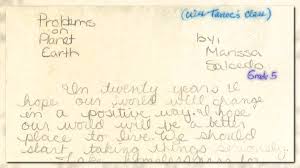 Problems
on
Planet
Earth
by:
Marissa
Salcedo
Grade 5
In twenty years I
hope our world will change
in a positive way. I hope
our world will be a better
place to live. We should
start taking things seriously.